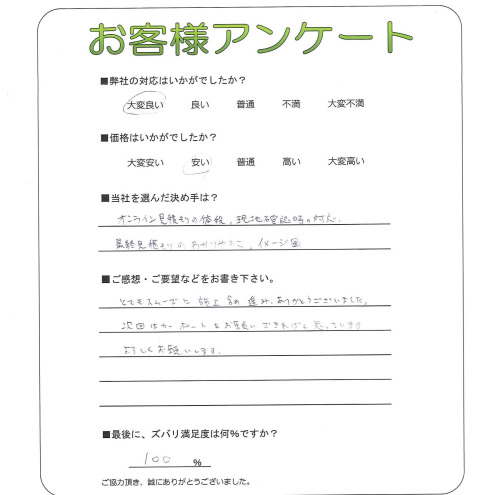 お客様アンケート
■弊社の対応はいかがでしたか？
大変良い　良い　普通　不満　大変不満
■価格はいかがでしたか？
大変安い　安い　普通　高い　大変高い
■当社を選んだ決め手は？
オンライン見積もりの価格、現地確認時の対応、
最終見積もりのわかりやすさ、イメージ図
■ご感想・ご要望などをお書き下さい。
とてもスムーズに施工含め進み、ありがとうございました。
次回はカーポートをお願いできればと思っています
よろしくお願いします。
■最後に、ズバリ満足度は何%ですか？
100 %
ご協力頂き、誠にありがとうございました。